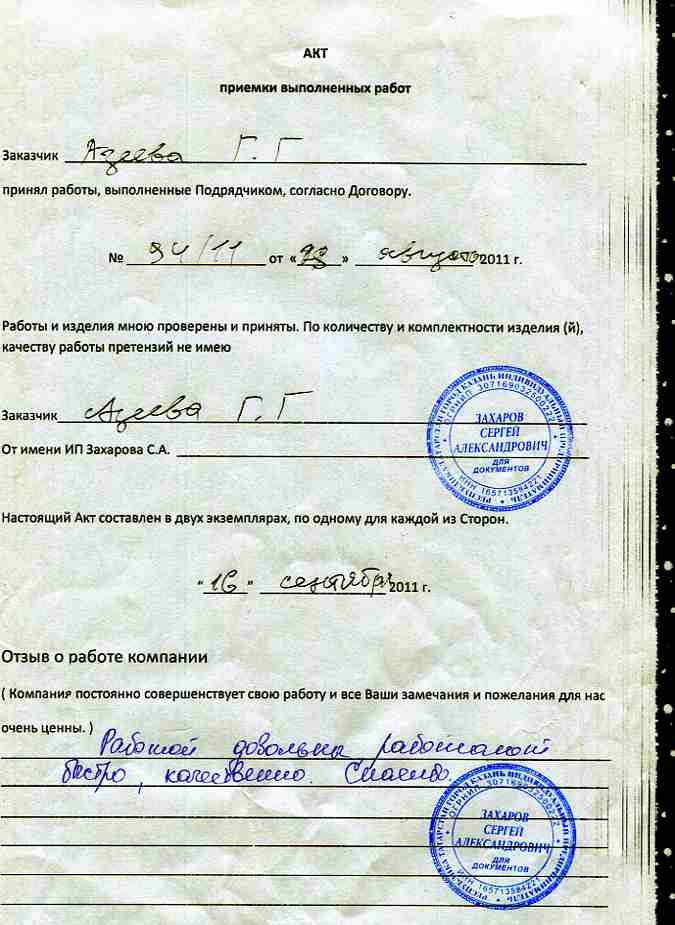 АКТ
приемки выполненных работ
Заказчик Азеева Г. Г
принял работы, выполненные Подрядчиком, согласно Договору.
№ 94/11 от «23» августа 2011 г.
Работы и изделия мною проверены и приняты. По количеству и комплектности изделия (й),
качеству работы претензий не имею
Заказчик Азеева Г. Г
От имени ИП Захарова С.А.
РЕСПУБЛИКА ТАТАРСТАН ГОРОД КАЗАНЬ ИНДИВИДУАЛЬНЫЙ ПРЕДПРИНИМАТЕЛЬ
ОГРНИП 307169032500222
ЗАХАРОВ
СЕРГЕЙ
АЛЕКСАНДРОВИЧ
ДЛЯ
ДОКУМЕНТОВ
ИНН 165713584221
Настоящий Акт составлен в двух экземплярах, по одному для каждой из Сторон.
"16" сентября 2011 г.
Отзыв о работе компании
( Компания постоянно совершенствует свою работу и все Ваши замечания и пожелания для нас
очень ценны. )
Работой довольны, работают
быстро, качественно. Спасибо.
РЕСПУБЛИКА ТАТАРСТАН ГОРОД КАЗАНЬ ИНДИВИДУАЛЬНЫЙ ПРЕДПРИНИМАТЕЛЬ
ОГРНИП 307169032500222
ЗАХАРОВ
СЕРГЕЙ
АЛЕКСАНДРОВИЧ
ДЛЯ
ДОКУМЕНТОВ
ИНН 165713584221